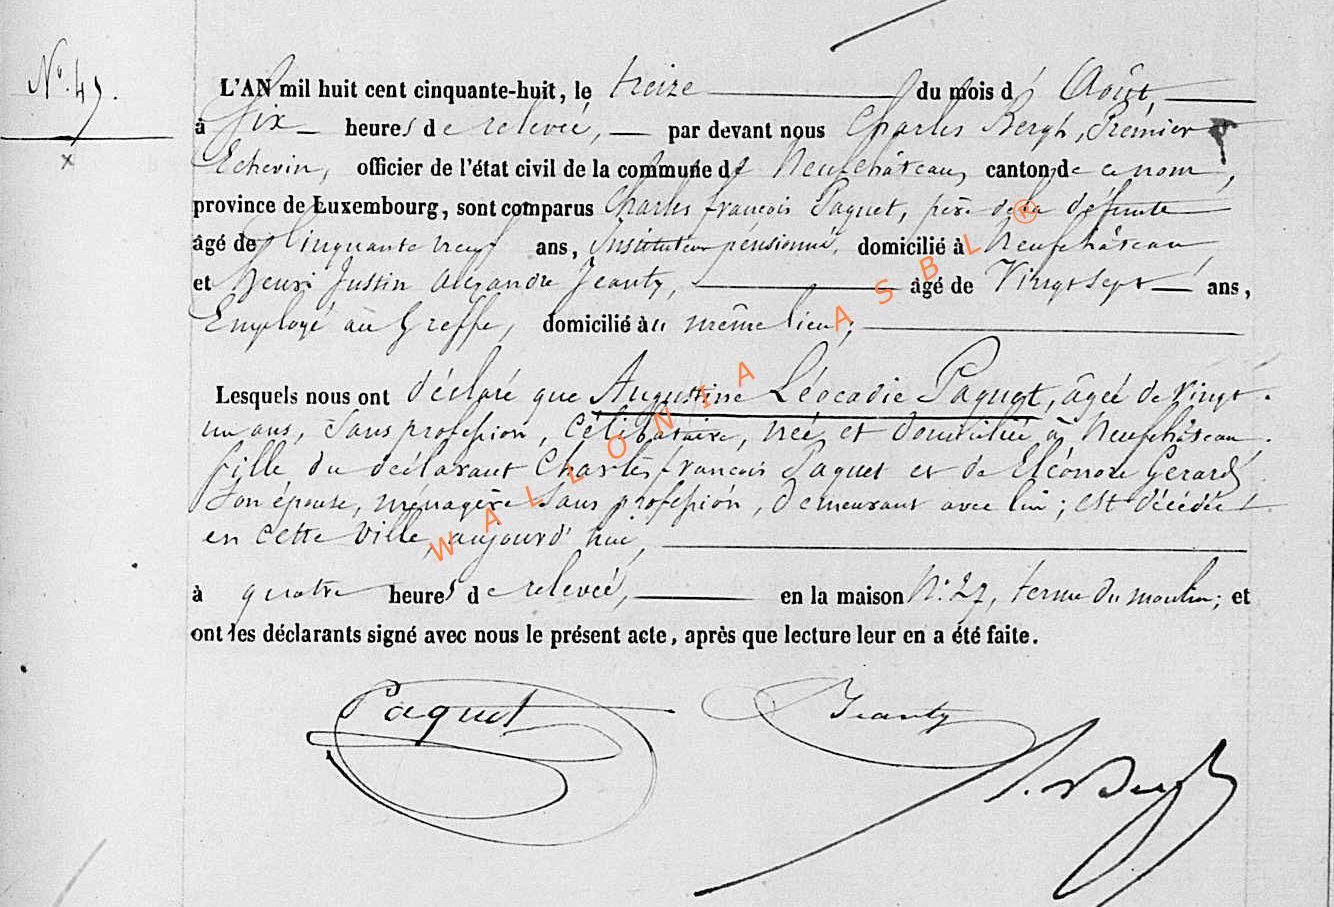 N°. 47.
L'AN mil huit cent cinquante-huit, le treize du mois d' Août,
à Six heures de relevée, par devant nous Charles Bergh, Premier
Echevin, officier de l'état civil de la commune de Neufchâteau, canton de ce nom,
province de Luxembourg, sont comparus Charles françois Paquet, père de la défunte
âgé de Cinquante neuf ans, Instituteur pensionné, domicilié à Neufchâteau
et Henri Justin Alexandre Jeanty, âgé de Vingt sept ans,
Employé au Greffe, domicilié au même lieu;
Lesquels nous ont déclaré que Augustine Léocadie Paquet, âgée de vingt
un ans, Sans profession, Célibataire, née et domiciliée à Neufchâteau.
fille du déclarant Charles françois Paquet et de Eléonore Gerard
Son épouse, ménagère Sans profession, demeurant avec lui; est décédée
en cette Ville, aujourd'hui,
à quatre heures de relevée, en la maison N°. 27, terme du moulin; et
ont les déclarants signé avec nous le présent acte, après que lecture leur en a été faite.
Paquet Jeanty
WALLONIA ASBL ®